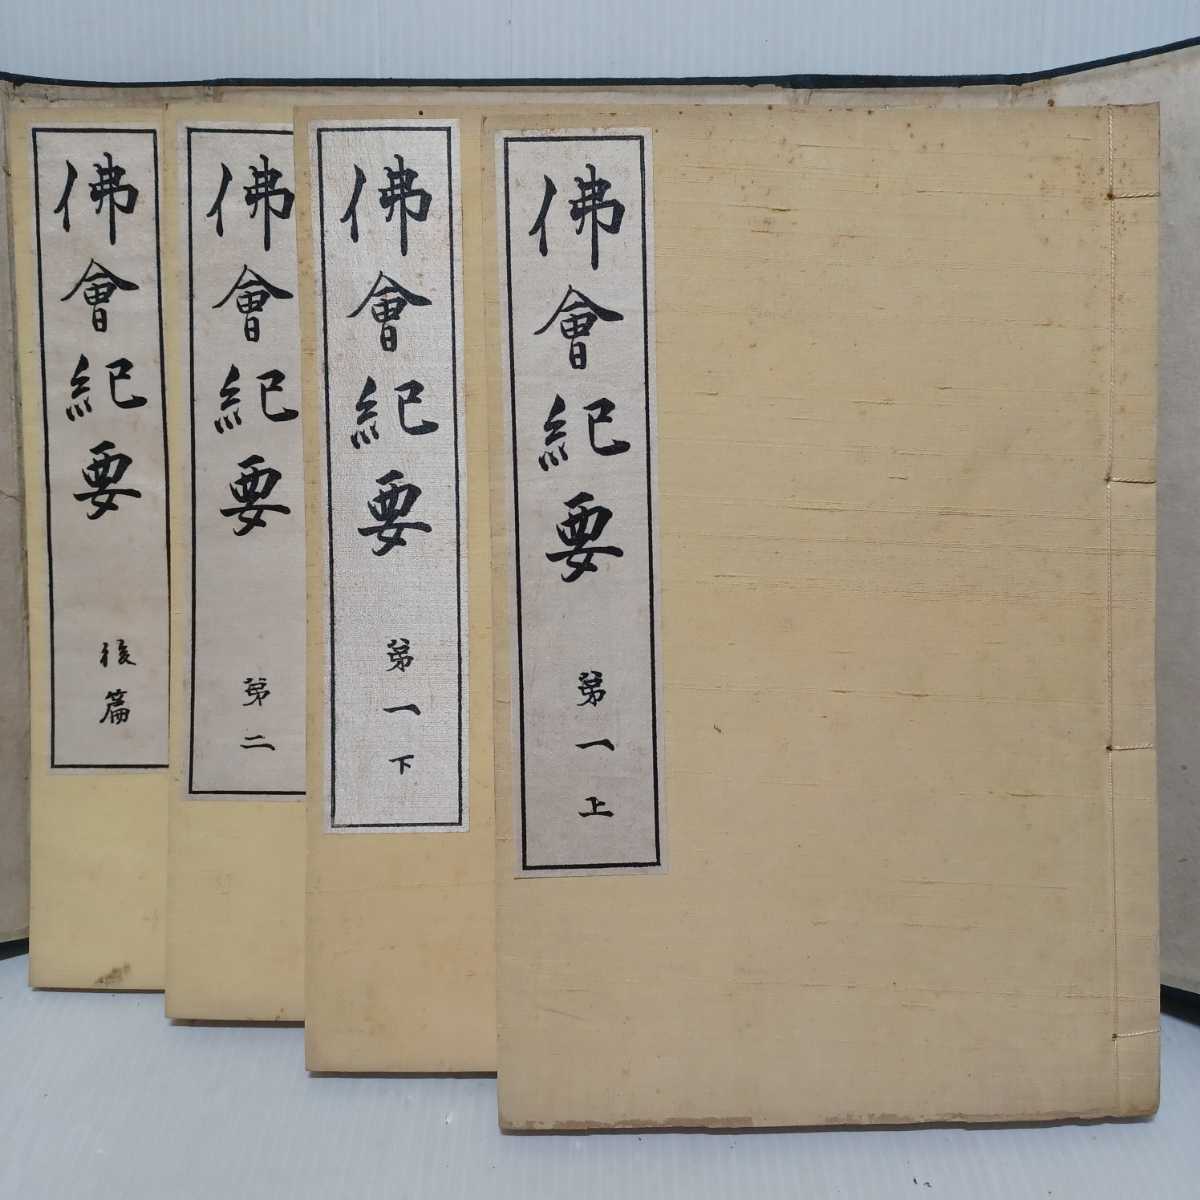 佛會紀要 第一上
佛會紀要 第一下
佛會紀要 第二
佛會紀要 後篇